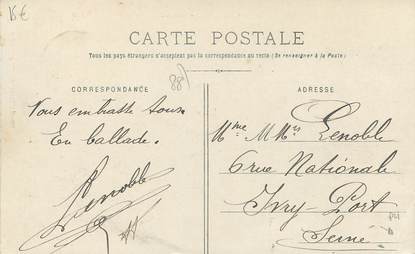 15 €
CARTE POSTALE
Tous les pays étrangers n'acceptent pas la correspondance au recto (Se renseigner à la Poste)
CORRESPONDANCE
88
ADRESSE
Vous embrasse tous
En ballade.
Lenoble
Mme M Lenoble
6 rue Nationale
Ivry-Port
Seine